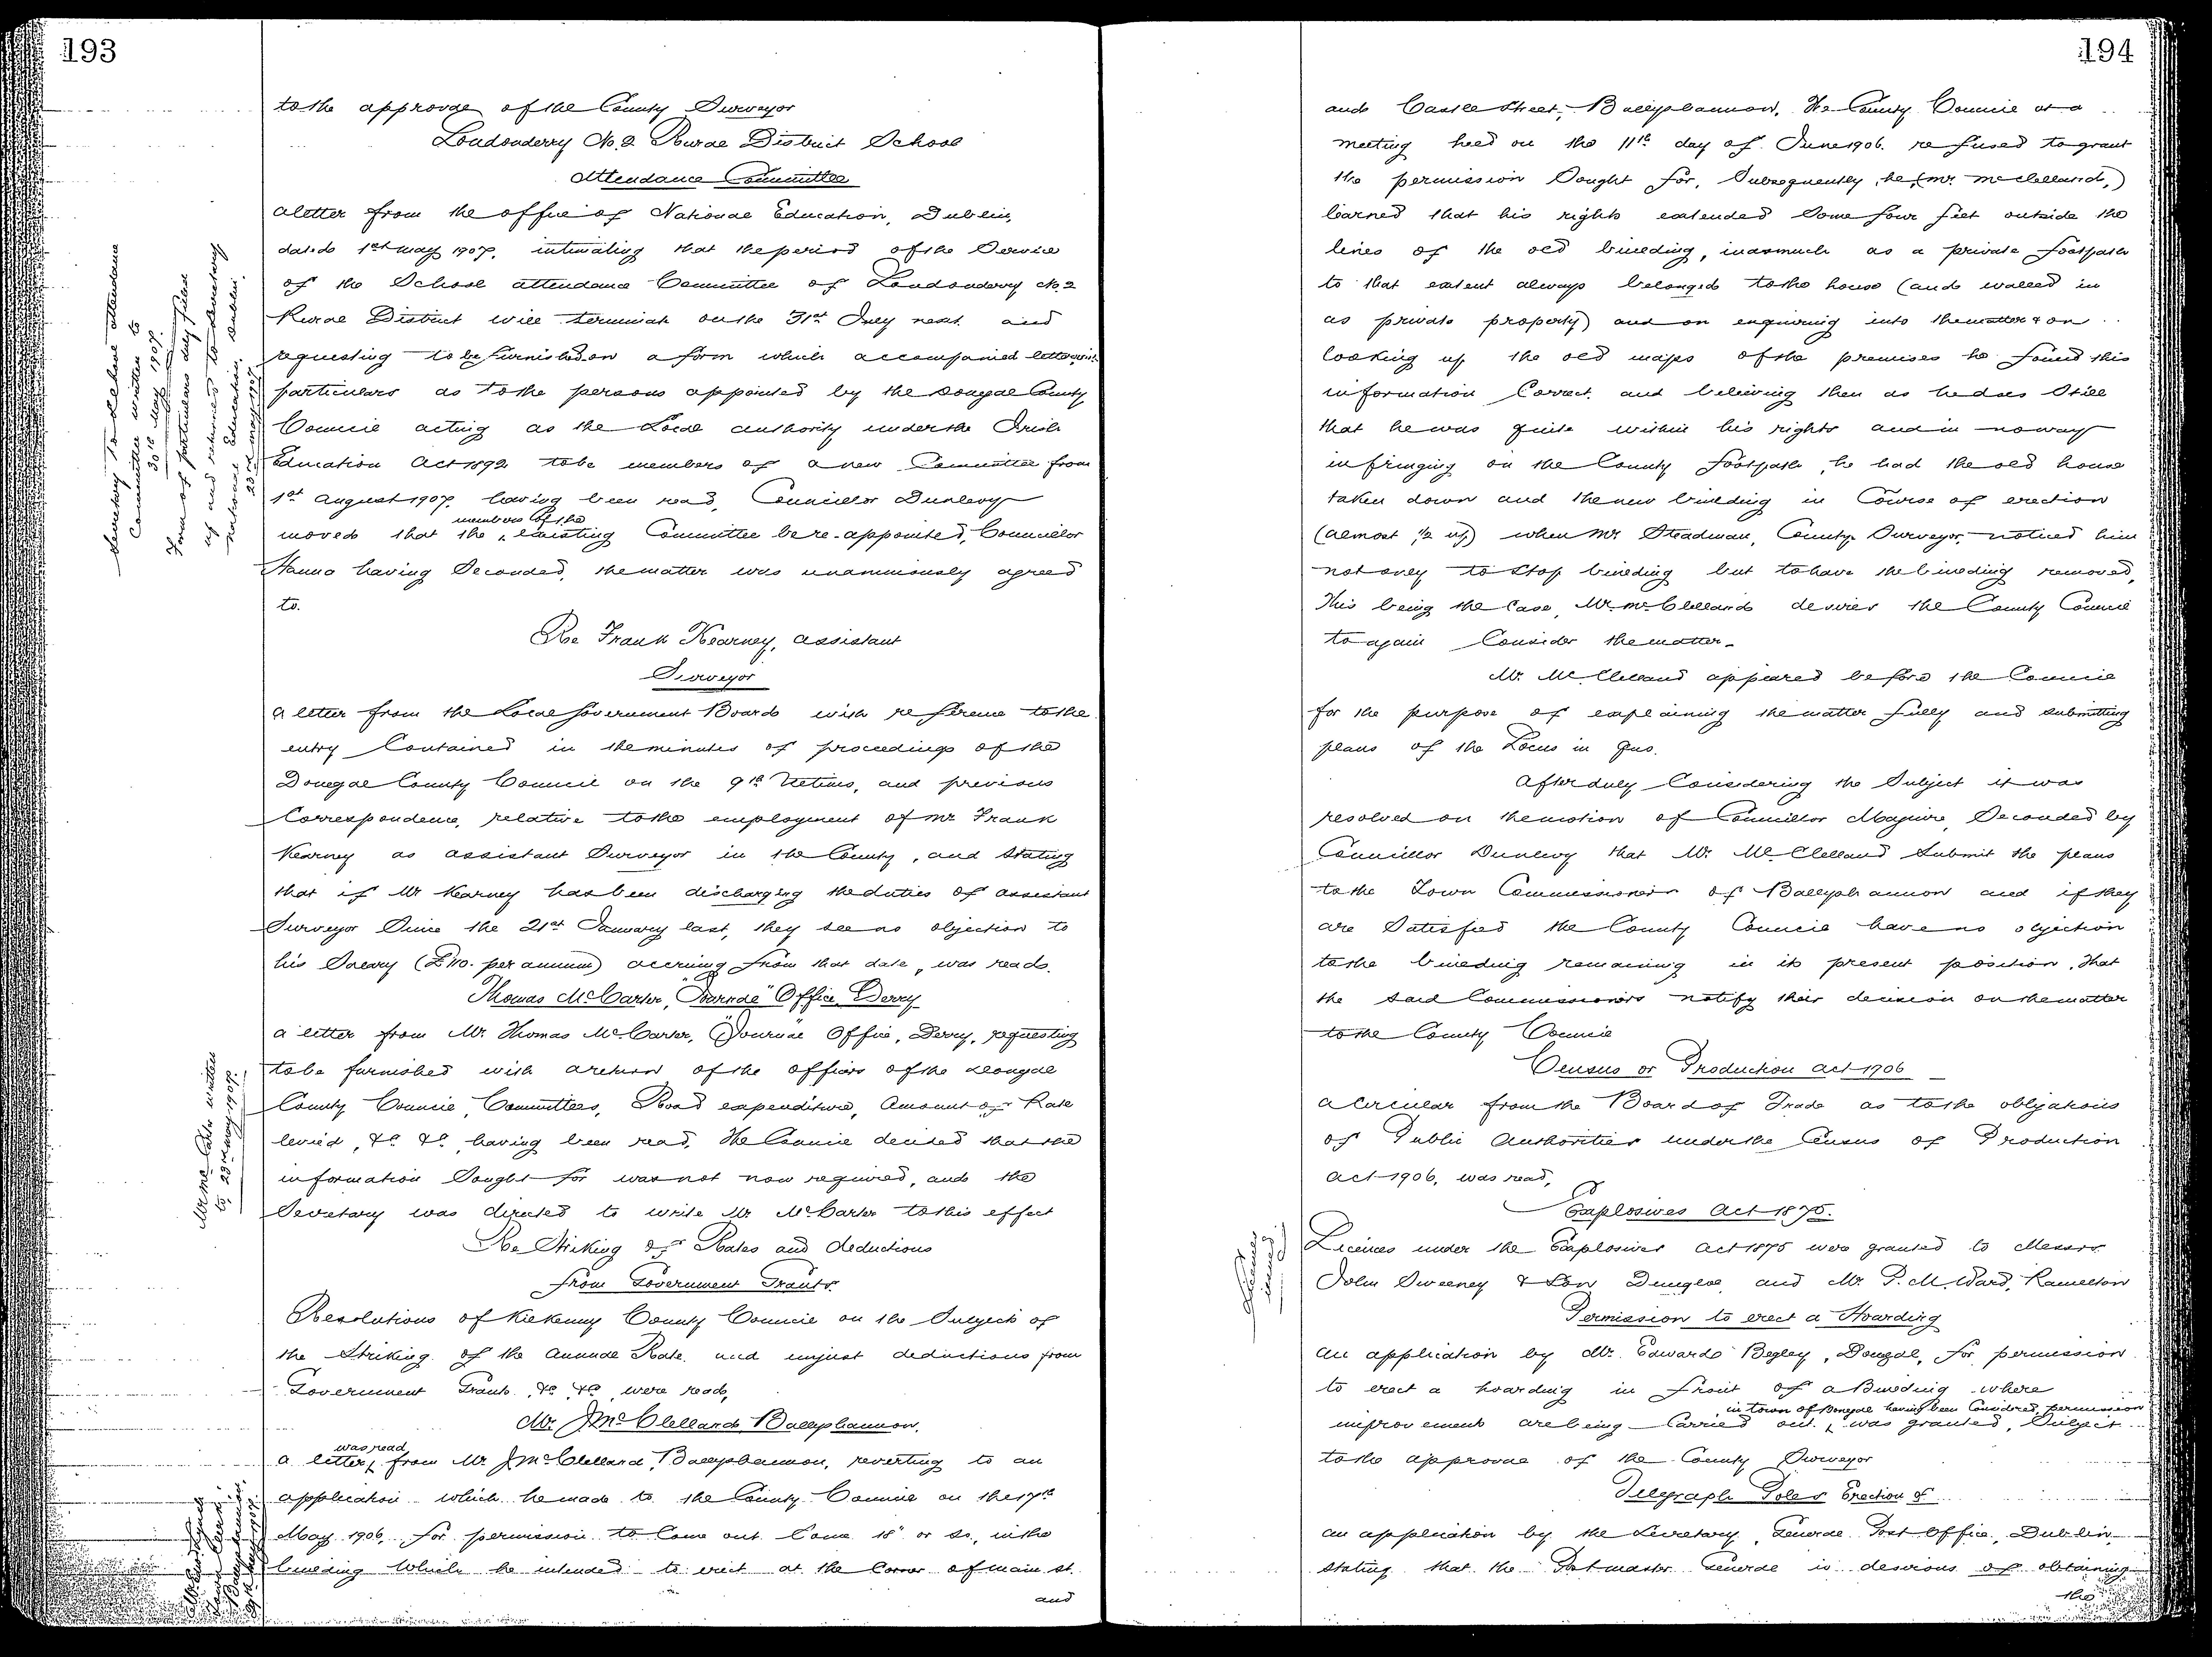 193
to the approval of the County Surveyor
Londonderry No. 2 Rural District School
Attendance Committee
a letter from the office of National Education, Dublin,
dated 1st May 1907, intimating that the period of the Service
of the School attendance Committee of Londonderry No. 2
Rural District will terminate on the 31st July next and
requesting to be furnished on a form which accompanied letter with
particulars as to the persons appointed by the Donegal County
Council acting as the Local authority under the Irish
Education Act 1892 to be members of a new Committee from
1st August 1907, having been read, Councillor Dunlevy
moved that the members of the existing Committee be re-appointed, Councillor
Hanna having Seconded, the matter was unanimously agreed
to.
Secretary to School attendance
Committee written to
30th May 1907.
Form of particulars duly filled
up and returned to Secretary
National Education, Dublin.
23rd May 1907
Re Frank Kearney, assistant
Surveyor
a letter from the Local Government Board with reference to the
entry Contained in the minutes of proceedings of the
Donegal County Council on the 9th Ultimo, and previous
Correspondence, relative to the employment of Mr Frank
Kearney as assistant Surveyor in the County, and Stating
that if Mr Kearney has been discharging the duties of assistant
Surveyor Since the 21st January last, they see no objection to
his Salary (£110. per annum) accruing from that date, was read.
Thomas McCarter, "Journal" Office, Derry
a letter from Mr. Thomas McCarter, "Journal" Office, Derry, requesting
to be furnished with a return of the officers of the Donegal
County Council, Committees, Road expenditure, Amount of Rate
levied, &c &c, having been read, the Council decided that the
information Sought for was not now required, and the
Secretary was directed to write Mr McCarter to this effect
Mr McCarter written
to, 23rd May 1907.
Re Striking of Rates and deductions
from Government Grants.
Resolutions of Kilkenny County Council on the Subject of
the Striking of the Annual Rate, and unjust deductions from
Government Grants, &c &c were read,
Mr. J McClelland, Ballyshannon.
a letter was read from Mr J McClelland, Ballyshannon, reverting to an
application which he made to the County Council on the 17th
May 1906, for permission to Come out Some 18" or so, in the
building Which he intended to erect at the Corner of Main St.
and
Town Clerk
Ballyshannon
194
and Castle Street, Ballyshannon. The County Council at a
meeting held on the 11th day of June 1906. refused to grant
the permission Sought for, Subsequently, he, (Mr. McClelland,)
learned that his rights extended Some four feet outside the
lines of the old building, inasmuch as a private footpath
to that extent always belonged to the house (and walled in
as private property) and on enquiring into the matter & on
looking up the old maps of the premises he found this
information Correct, and believing then as he does Still
that he was quite within his rights and in no way
infringing on the County footpath, he had the old house
taken down and the new building in Course of erection
(almost ½ up) when Mr Steadman, County Surveyor, noticed him
not only to Stop building but to have the building removed,
This being the Case, Mr. McClelland desires the County Council
to again Consider the matter.
Mr. McClelland appeared before the Council
for the purpose of explaining the matter fully and submitting
plans of the Locus in quo.
After duly Considering the Subject it was
resolved on the motion of Councillor Maguire, Seconded by
Councillor Dunlevy that Mr. McClelland Submit the plans
to the Town Commissioners of Ballyshannon and if they
are Satisfied the County Council have no objection
to the building remaining in its present position, that
the said Commissioners notify their decision on the matter
to the County Council
Census or Production Act 1906
a circular from the Board of Trade as to the obligations
of Public Authorities under the Census of Production
Act 1906, was read,
Explosives Act 1875.
Licences under the Explosives Act 1875 were granted to Messrs
John Sweeney & Son, Dungloe, and Mr. P. M. Ward, Ramelton
Permission to erect a Hoarding
an application by Mr. Edward Begley, Donegal, for permission
to erect a hoarding in front of a Building where
improvements are being Carried out, in town of Donegal having been Considered, permission was granted, Subject
to the approval of the County Surveyor
Telegraph Poles Erection of
an application by the Secretary, General Post Office, Dublin
stating that the Postmaster General is desirous of obtaining
the